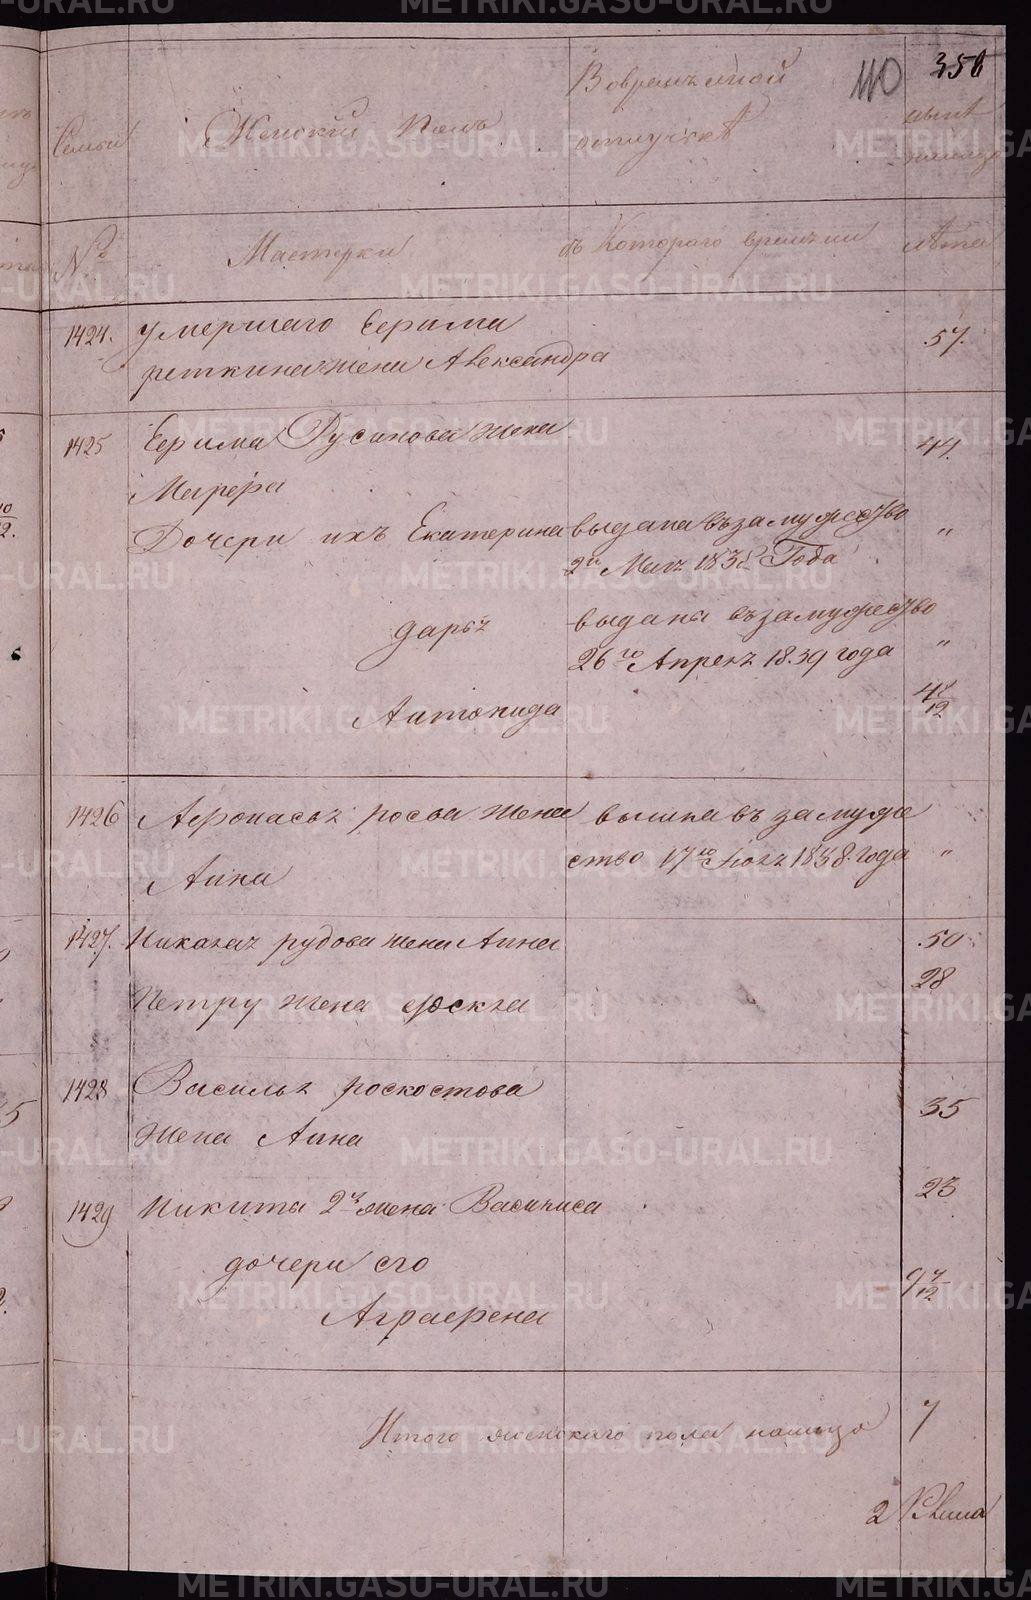 110 356
Семьи Женский полъ Вовремѣнной отлучкѣ нынѣ налицо
№ Мастерки съ Которого времѣни лѣта
1424. умершаго Ефима 57.
реткина жена Александра
1425 Ефима Русинова жена 44.
Марфа
Дочери ихъ Екатерина выдана възамужество "
2го Мая 1838 Года
дарья выдана възамужество
26го Апреля 1839 года "
Антонида 4 8/12
1426 Афонасья росва жена вышла въ замуже
Анна ство 17го 1838. года "
1427. Николая рудова жена Анна 50
Петру жена фоскла 28
1428 Василья роскостова
жена Анна 35
1429 Никита 2я жена Василиса 23
дочери его
Аграфена 9 7/12
Итого женскаго пола налицо 7
METRIKI.GASO-URAL.RU